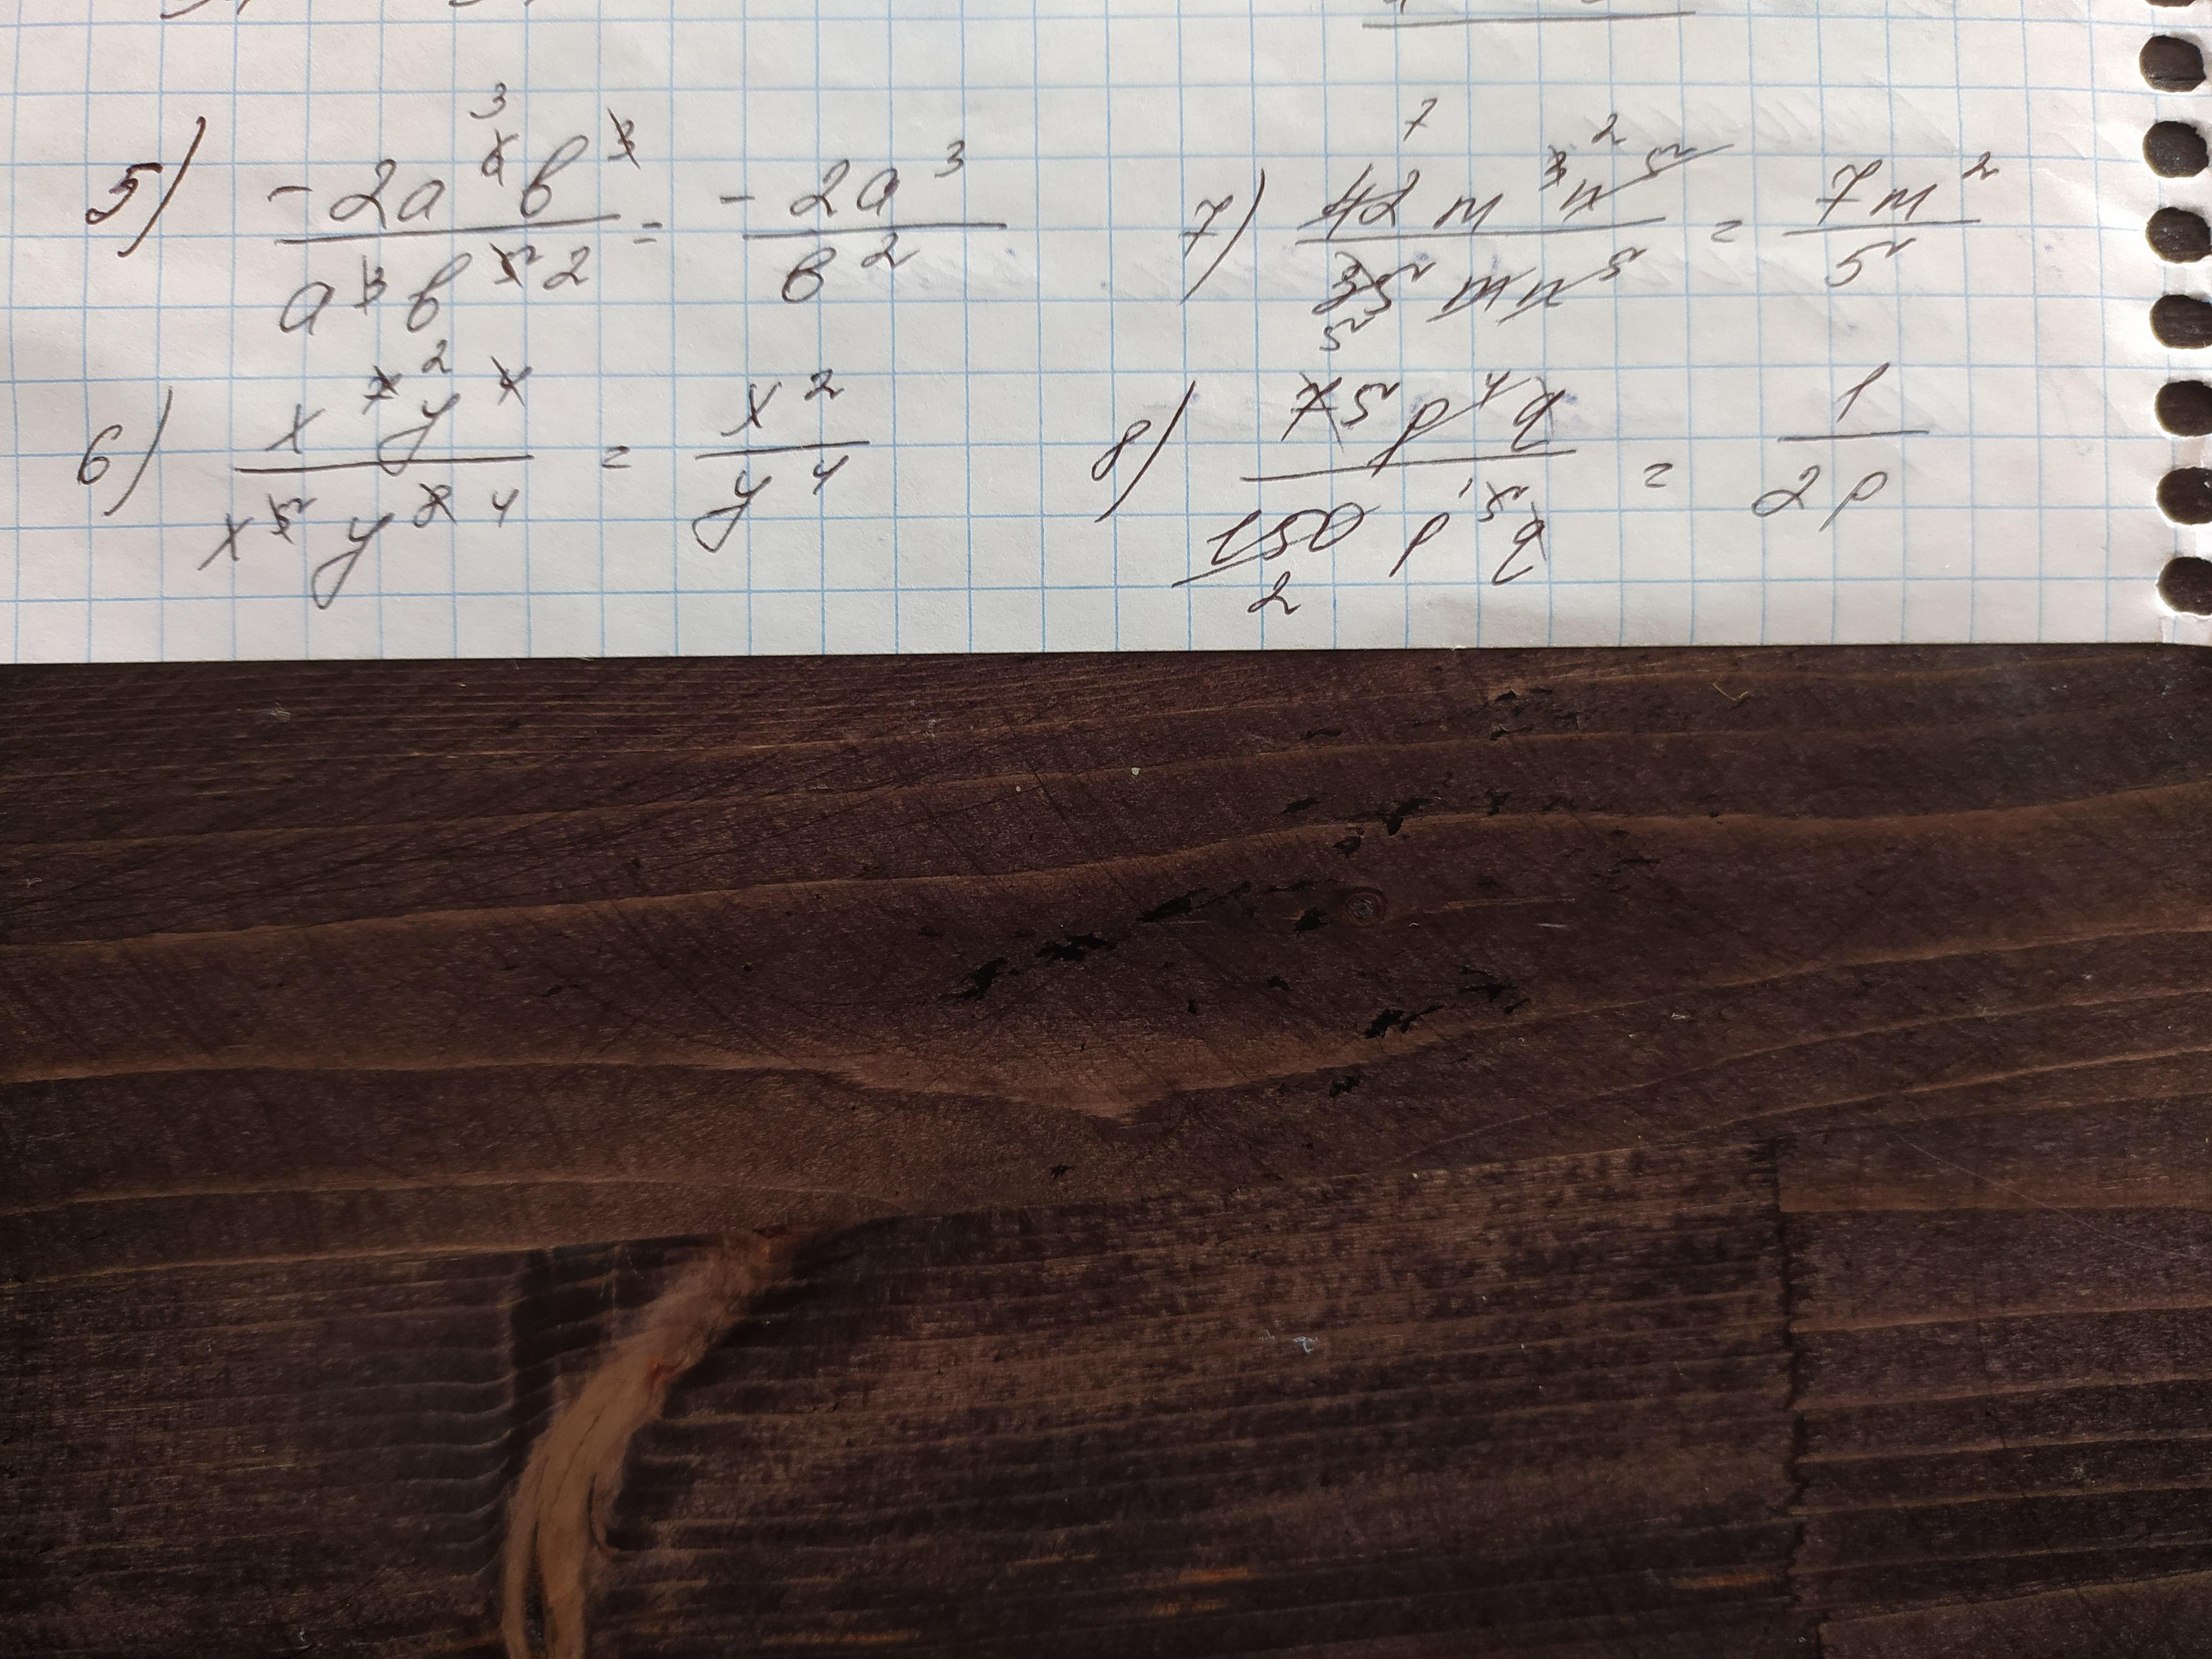 5) -2a⁶b³ / a³b⁵ = -2a³ / b²
7) 42m³n⁵ / 35mn⁵ = 7m² / 5
6) x⁷y⁴ / x⁵y⁸ = x² / y⁴
8) 75p⁴q / 150p⁵q = 1 / 2p